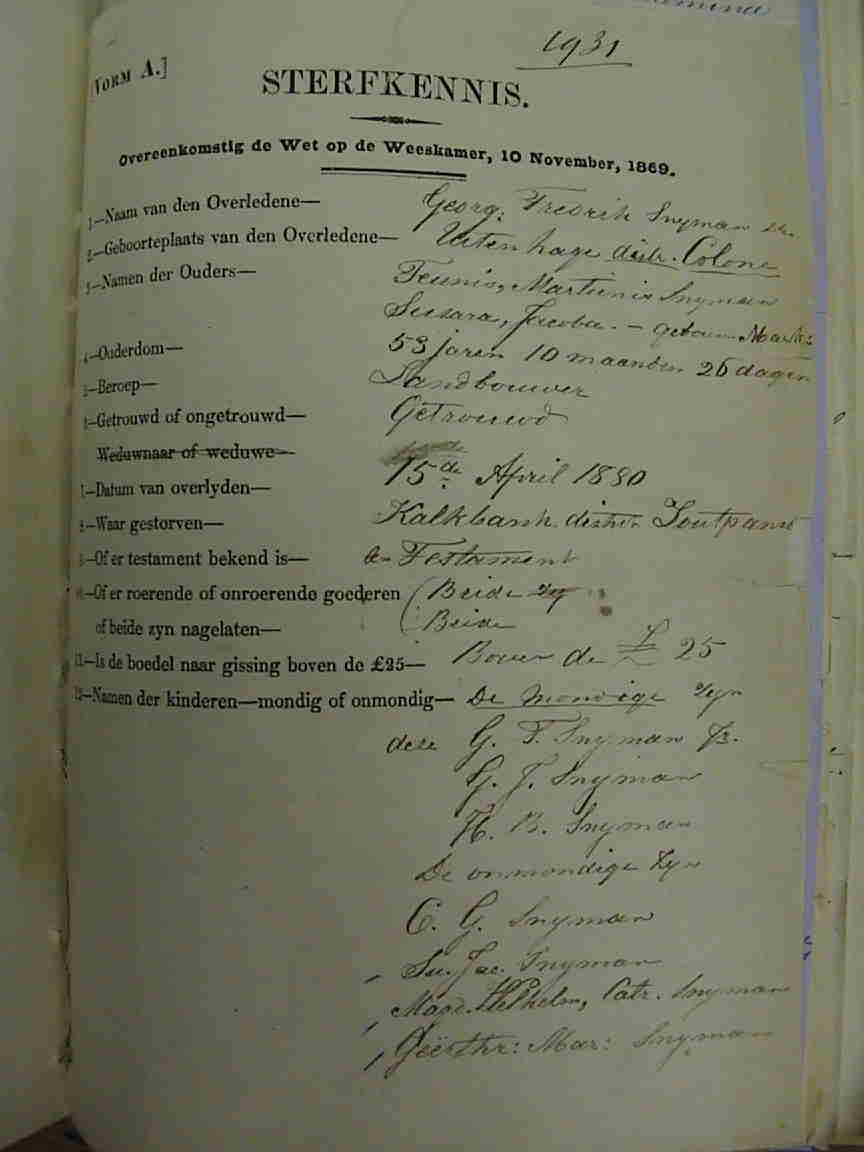 1931
[VORM A.]
STERFKENNIS.
Overeenkomstig de Wet op de Weeskamer, 10 November, 1869.
1—Naam van den Overledene— Georg: Fredrik Snyman
2—Geboorteplaats van den Overledene— Uitenhage distr. Colone
3—Namen der Ouders— Teunis, Martinis Snyman
Susara, Jacoba. —
4—Ouderdom— 53 jaren 10 maanden 26 dagen
5—Beroep— Landbouwer
6—Getrouwd of ongetrouwd— Getrouwd
Weduwnaar of weduwe—
7—Datum van overlyden— 15de April 1880
8—Waar gestorven— Kalkbank
9—Of er testament bekend is— Testament
10—Of er roerende of onroerende goederen Beide
of beide zyn nagelaten— Beide
11—Is de boedel naar gissing boven de £25— Boven de £ 25
12—Namen der kinderen—mondig of onmondig— De mondige zyn
deze G. F. Snyman Jr.
G. J. Snyman
H. B. Snyman
De onmondige zyn
C. G. Snyman
Su. Jac. Snyman
Magd. Wilhelm, Catr. Snyman
Mar: Snyman